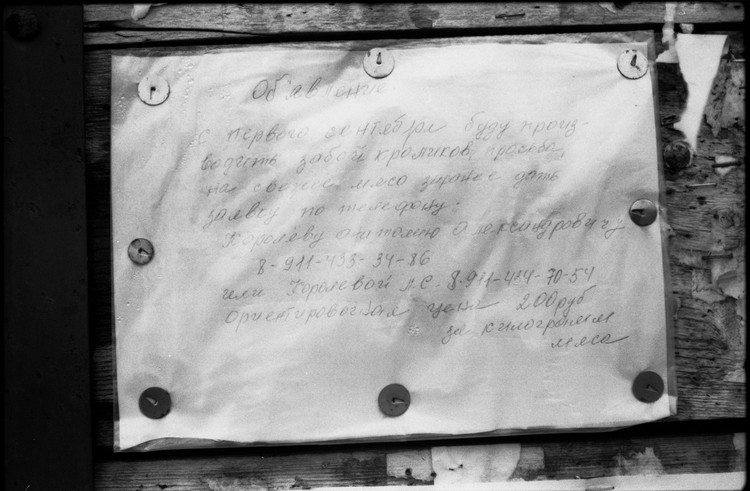 Объявление
С первого сентября буду произ-
водить забой кроликов, просьба,
на свежее мясо заранее дать
заявку по телефону.
Королёву Анатолию Александровичу
8-911-433-34-86
или Королевой Л.С. 8-911-414-70-54
Ориентировочная цена 200 руб
за килограмм
мяса